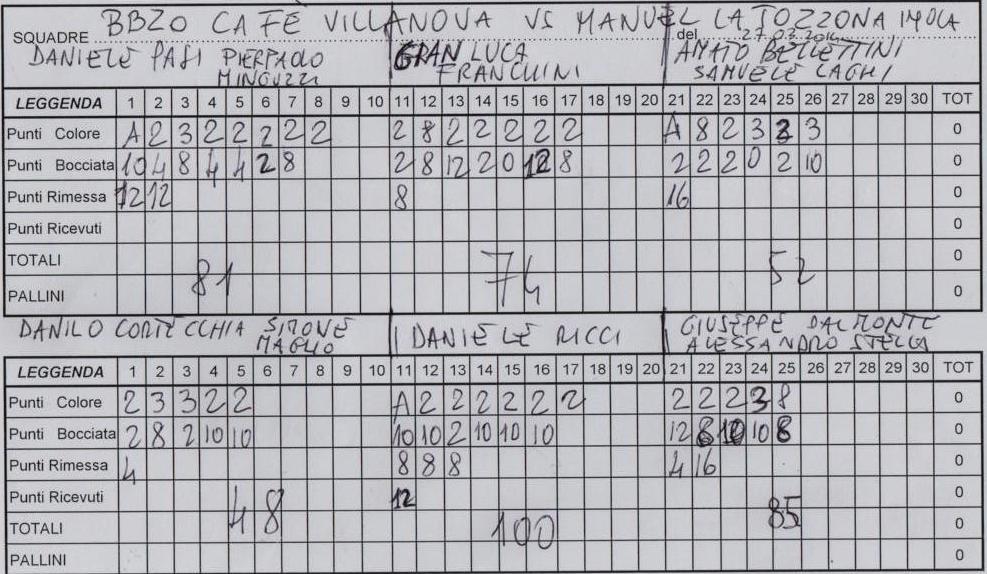 SQUADRE BBZO CAFÈ VILLANOVA VS MANUEL LA TOZZONA IMOLA
del 27.03.2014
DANIELE PASI PIERPAOLO MINGUZZI GIAN LUCA FRANCHINI AMATO BELLETTINI SAMUELE LAGHI
LEGGENDA 1 2 3 4 5 6 7 8 9 10 11 12 13 14 15 16 17 18 19 20 21 22 23 24 25 26 27 28 29 30 TOT
Punti Colore A 2 3 2 2 2 2 2 2 8 2 2 2 2 2 A 8 2 3 3 3 0
Punti Bocciata 10 4 8 4 4 2 8 2 8 12 20 12 8 2 2 2 0 2 10 0
Punti Rimessa 12 12 8 16 0
Punti Ricevuti 0
TOTALI 81 74 52 0
PALLINI 0
DANILO CORTECCHIA SIMONE MAGLIO DANIELE RICCI GIUSEPPE DALMONTE ALESSANDRO STELLA
LEGGENDA 1 2 3 4 5 6 7 8 9 10 11 12 13 14 15 16 17 18 19 20 21 22 23 24 25 26 27 28 29 30 TOT
Punti Colore 2 3 3 2 2 A 2 2 2 2 2 2 2 2 2 3 8 0
Punti Bocciata 2 8 2 10 10 10 10 2 10 10 10 12 8 10 10 8 0
Punti Rimessa 4 8 8 8 4 16 0
Punti Ricevuti 12 0
TOTALI 48 100 85 0
PALLINI 0